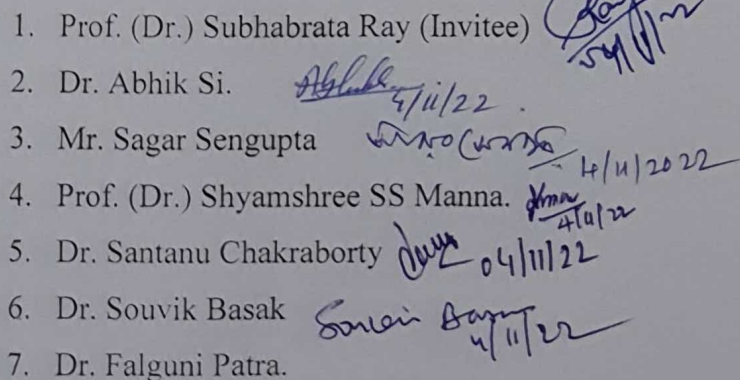 1. Prof. (Dr.) Subhabrata Ray (Invitee)
2. Dr. Abhik Si. 4/11/22.
3. Mr. Sagar Sengupta 4/11/2022
4. Prof. (Dr.) Shyamshree SS Manna. 4/11/22
5. Dr. Santanu Chakraborty 04/11/22
6. Dr. Souvik Basak 4/11/22
7. Dr. Falguni Patra.